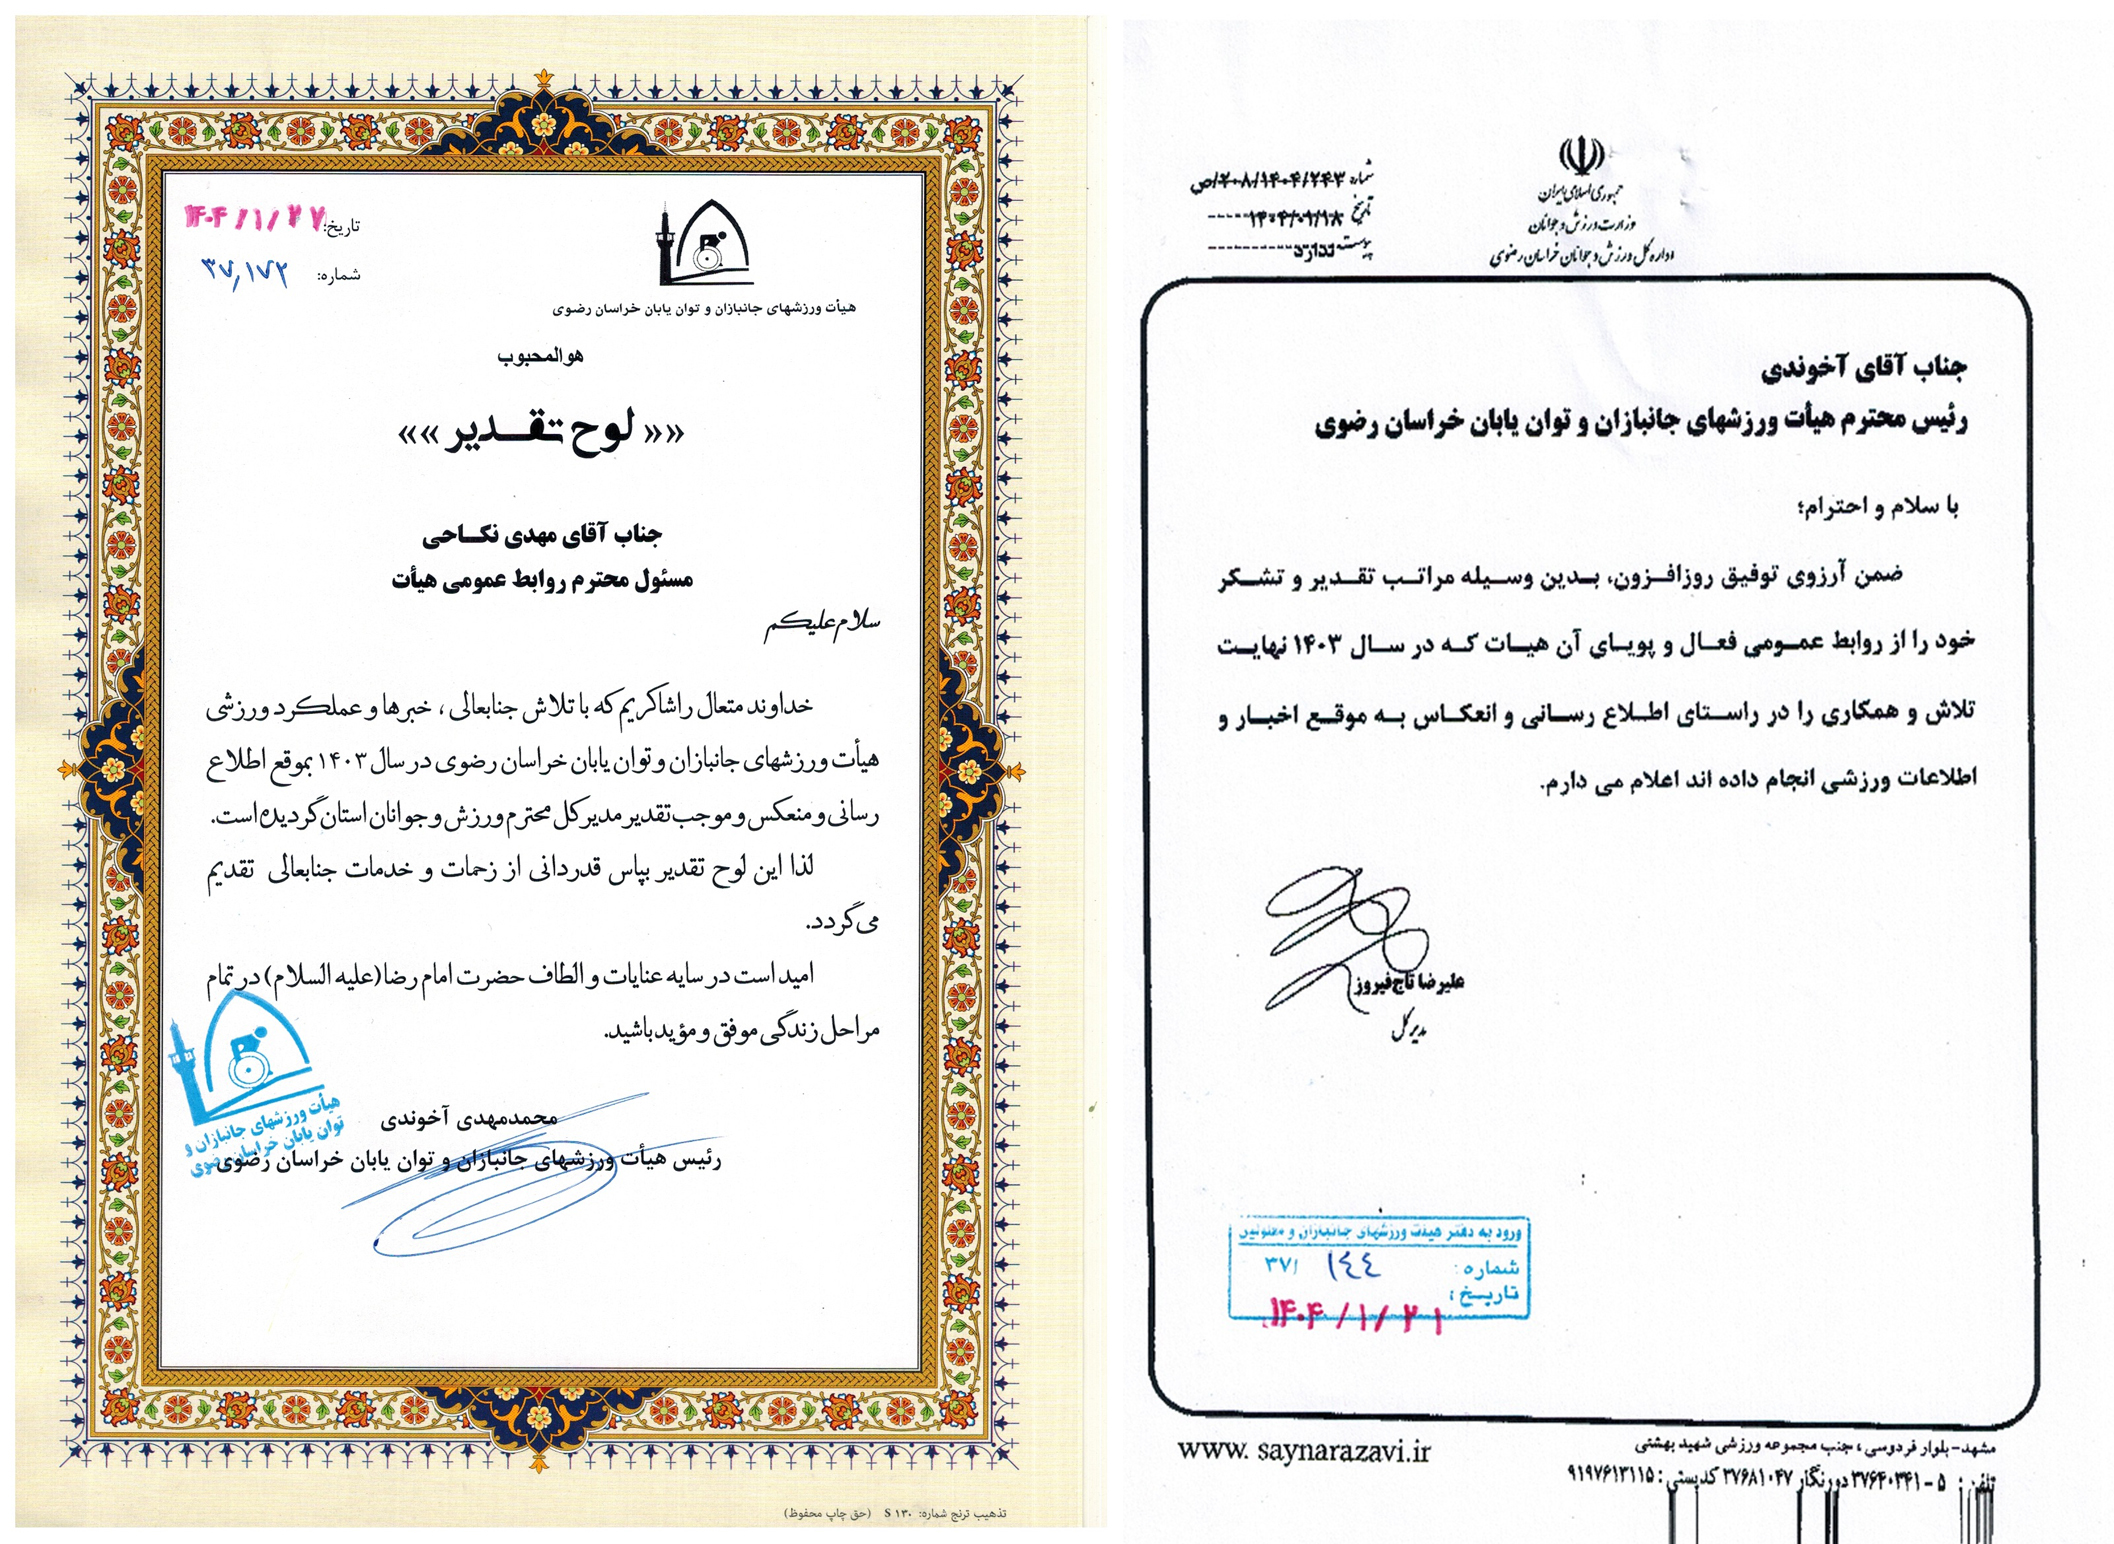 تاریخ: ۱۴۰۴/۱/۲۷
شماره: ۳۷٫۱۷۲
هیأت ورزشهای جانبازان و توان یابان خراسان رضوی
هوالمحبوب
«« لوح تقـدیر »»
جناب آقای مهدی نکـاحی
مسئول محترم روابط عمومی هیأت
سلام علیکم
خداوند متعال را شاکریم که با تلاش جنابعالی ، خبرها و عملکرد ورزشی
هیأت ورزشهای جانبازان و توان یابان خراسان رضوی در سال ۱۴۰۳ بموقع اطلاع
رسانی و منعکس و موجب تقدیر مدیر کل محترم ورزش و جوانان استان گردیده است.
لذا این لوح تقدیر بپاس قدردانی از زحمات و خدمات جنابعالی تقدیم
می گردد.
امید است در سایه عنایات و الطاف حضرت امام رضا (علیه السلام) در تمام
مراحل زندگی موفق و مؤید باشید.
محمدمهدی آخوندی
رئیس هیأت ورزشهای جانبازان و توان یابان خراسان رضوی
هیأت ورزشهای جانبازان و
توان یابان خراسان رضوی
تذهیب ترنج شماره: S ۱۳۰ (حق چاپ محفوظ)
جمهوری اسلامی ایران
وزارت ورزش و جوانان
اداره کل ورزش و جوانان خراسان رضوی
شماره ۲۰۸/۱۴۰۴/۲۴۳/ص
تاریخ ۱۴۰۴/۰۱/۱۸
پیوست ندارد
جناب آقای آخوندی
رئیس محترم هیأت ورزشهای جانبازان و توان یابان خراسان رضوی
با سلام و احترام؛
ضمن آرزوی توفیق روزافـزون، بـدین وسـیله مراتـب تقـدیر و تشـکر
خود را از روابط عمـومی فعـال و پویـای آن هیـات کـه در سـال ۱۴۰۳ نهایـت
تلاش و همکاری را در راسـتای اطـلاع رسـانی و انعکـاس بـه موقـع اخبـار و
اطلاعات ورزشی انجام داده اند اعلام می دارم.
علیرضا تاج‌فیروز
مدیر کل
ورود به دفتر هیئت ورزشهای جانبازان و معلولین
شماره: ۱۴۴ /۳۷
تاریـخ: ۱۴۰۴/۱/۲۱
مشهد- بلوار فردوسی ، جنب مجموعه ورزشی شهید بهشتی
تلفن: ۵ -۳۷۶۴۰۳۴۱ دورنگار ۳۷۶۸۱۰۴۷ کدپستی: ۹۱۹۷۶۱۳۱۱۵
www. saynarazavi.ir